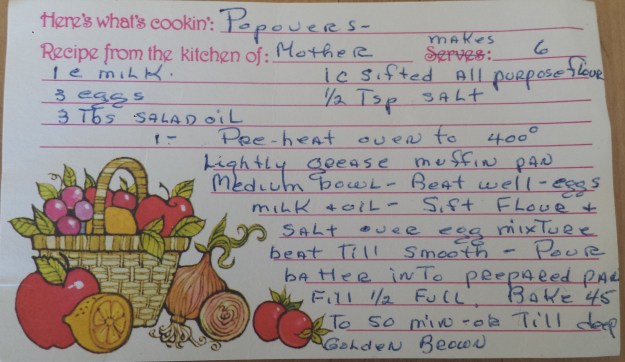 Here's what's cookin': Popovers-
Recipe from the kitchen of: Mother makes Serves: 6
1 c milk. 1c sifted All purpose flour
3 eggs 1/2 Tsp SALT
3 Tbs SALAD oil
1- Pre-heat oven to 400°
Lightly grease muffin pan
Medium bowl- Beat well-eggs
milk & oil- Sift Flour &
SALT over egg mixture
beat Till smooth - Pour
batter inTo prepared pan
Fill 1/2 Full. Bake 45
To 50 min-or Till deep
Golden Brown